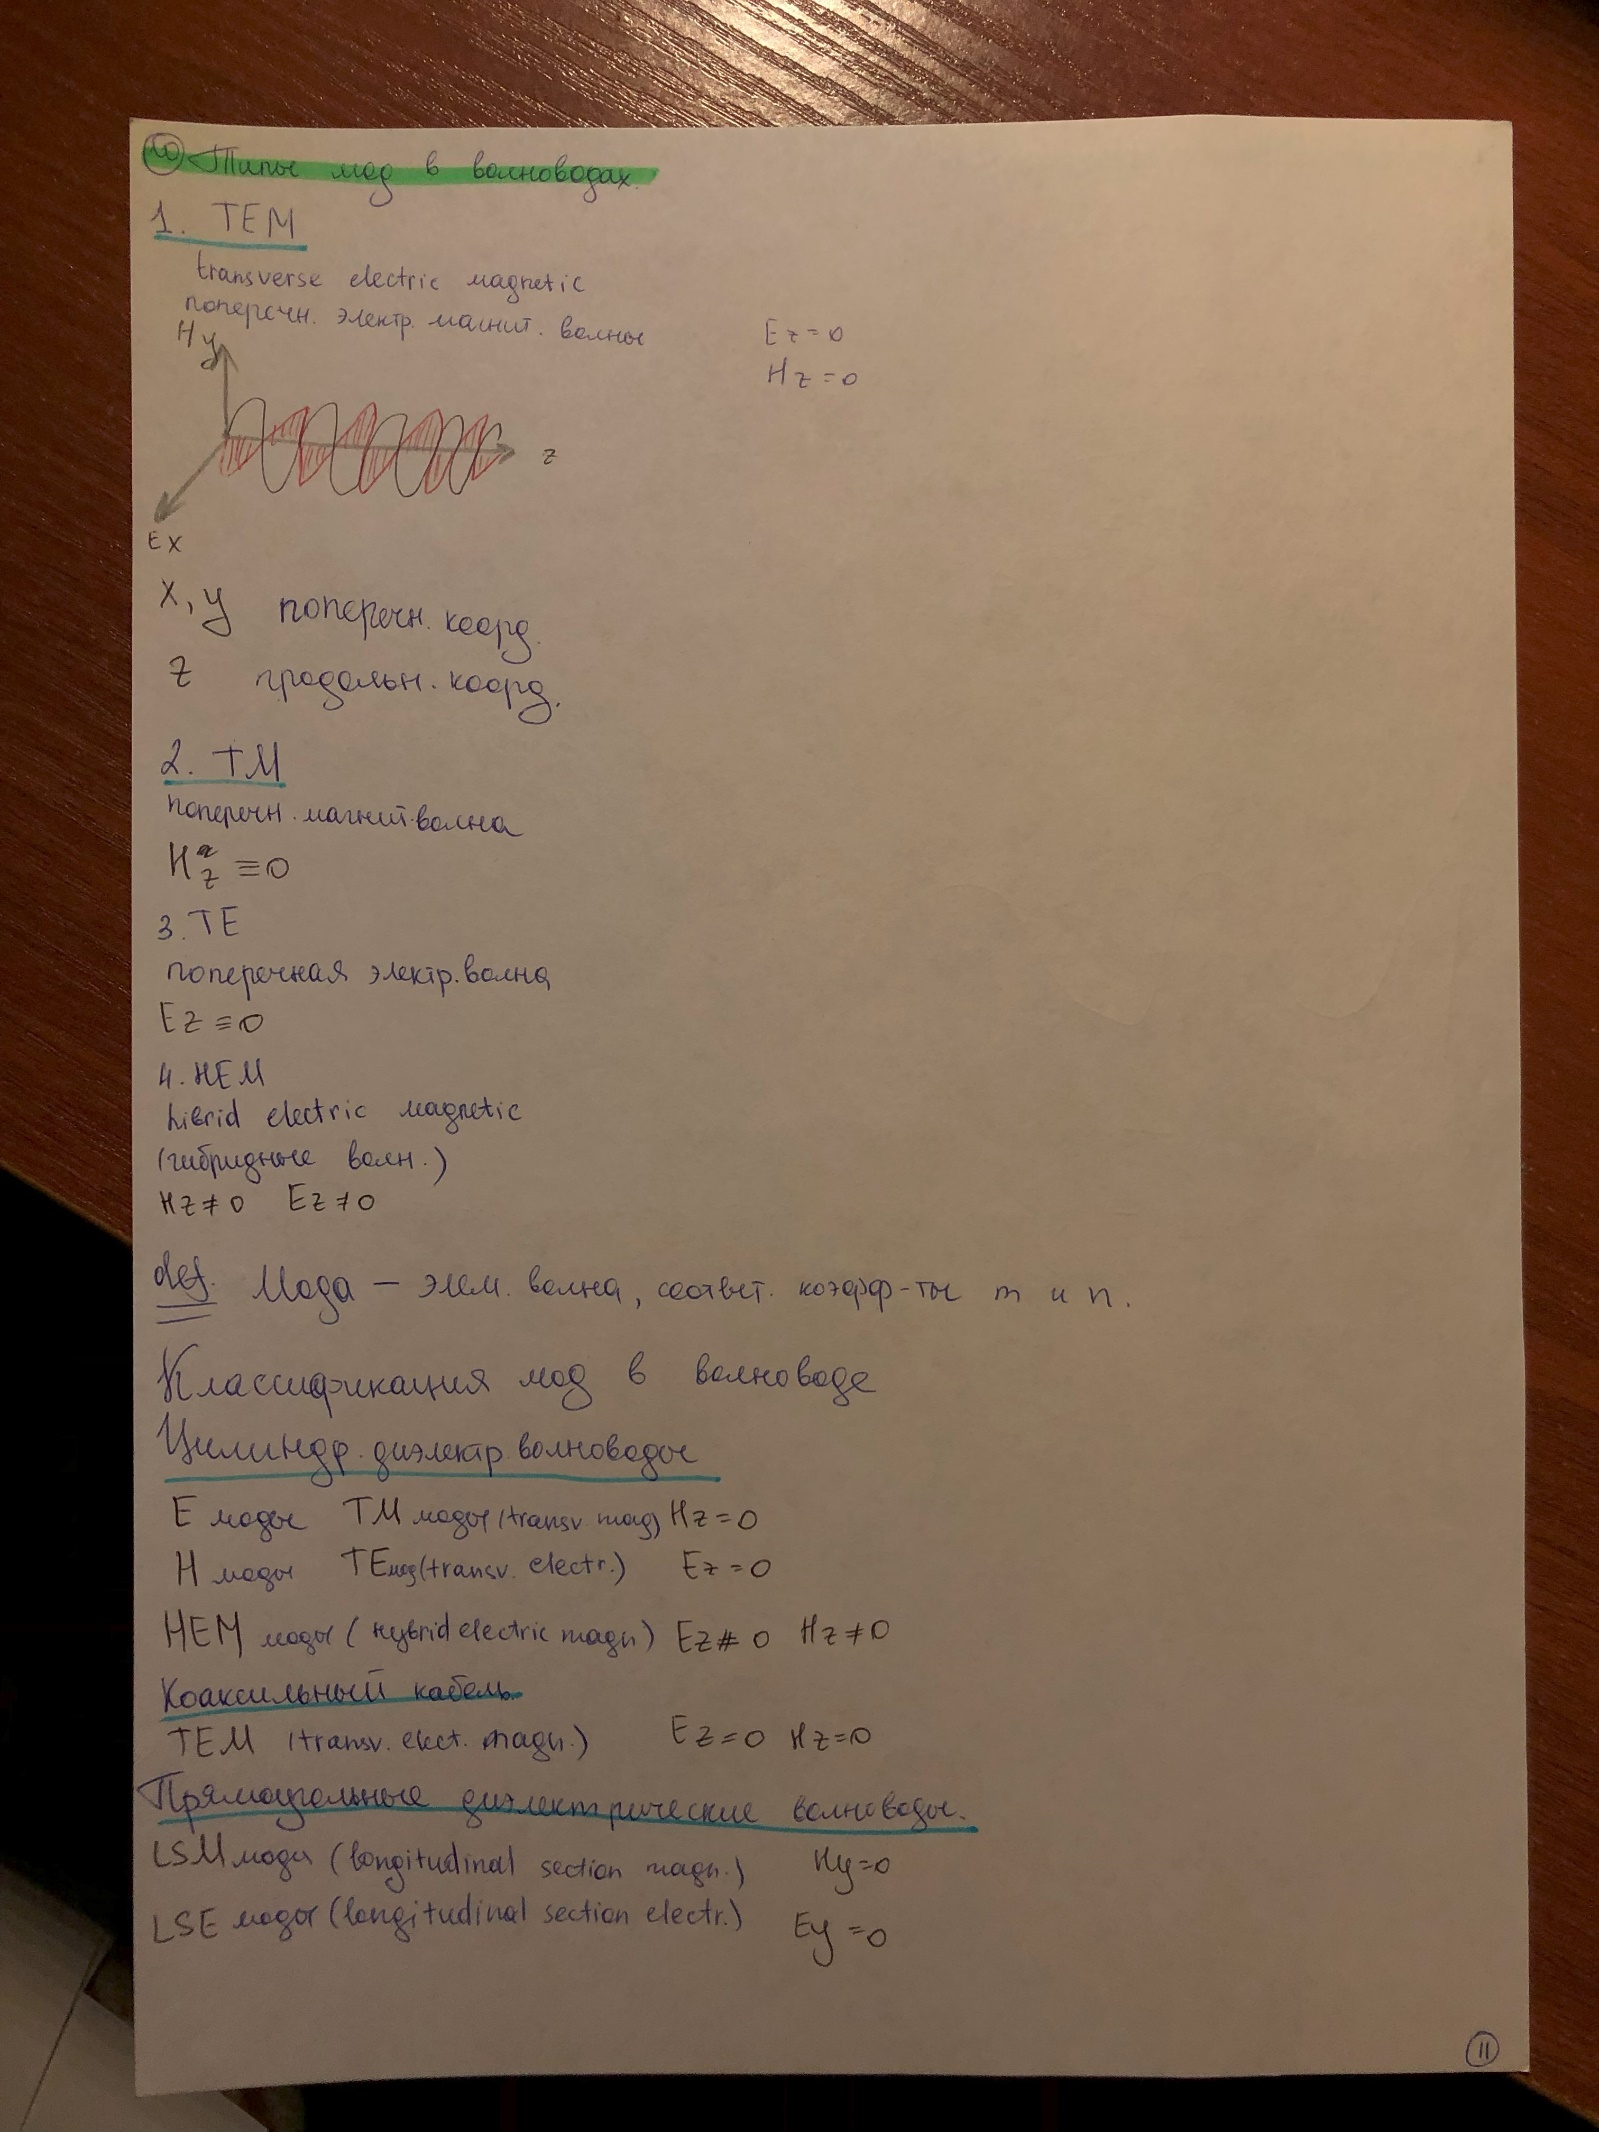 20 Типы мод в волноводах.
1. TEM
transverse electric magnetic
поперечн. электр. магнит. волны
Ez=0
Hz=0
Hy
z
Ex
x, y поперечн. коорд.
z продольн. коорд.
2. TM
поперечн. магнит. волна
Hz ≡0
3. TE
поперечная электр. волна
Ez ≡0
4. HEM
hibrid electric magnetic
(гибридные волн.)
Hz≠0 Ez≠0
def. Мода – элем. волна, соответ. коэфф-ты m и n.
Классификация мод в волноводе
Цилиндр. диэлектр. волноводы
E моды TM моды (transv. mag) Hz=0
H моды TE мод (transv. electr.) Ez=0
HEM моды (hybrid electric magn) Ez≠0 Hz≠0
Коаксильный кабель
TEM (transv. elect. magn.) Ez=0 Hz=0
Прямоугольные диэлектрические волноводы.
LSM моды (longitudinal section magn.) Hy=0
LSE моды (longitudinal section electr.) Ey=0
11